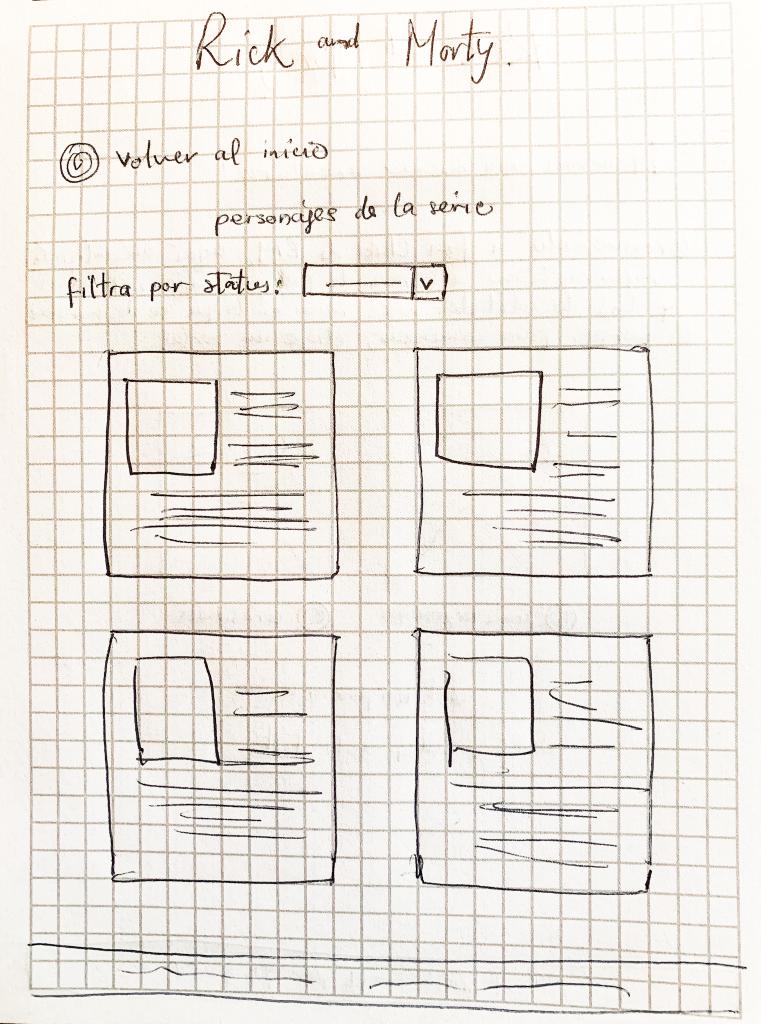 Rick and Morty.
volver al inicio
personajes de la serie
filtra por status:
v